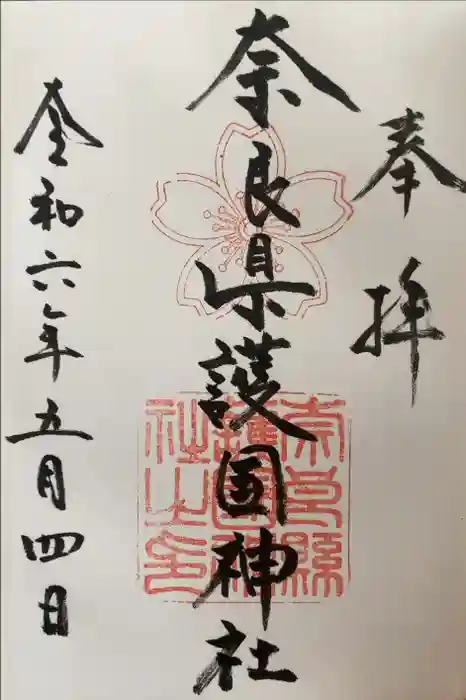 奉拝
奈良県護國神社
奈良縣護國神社之印
令和六年五月四日